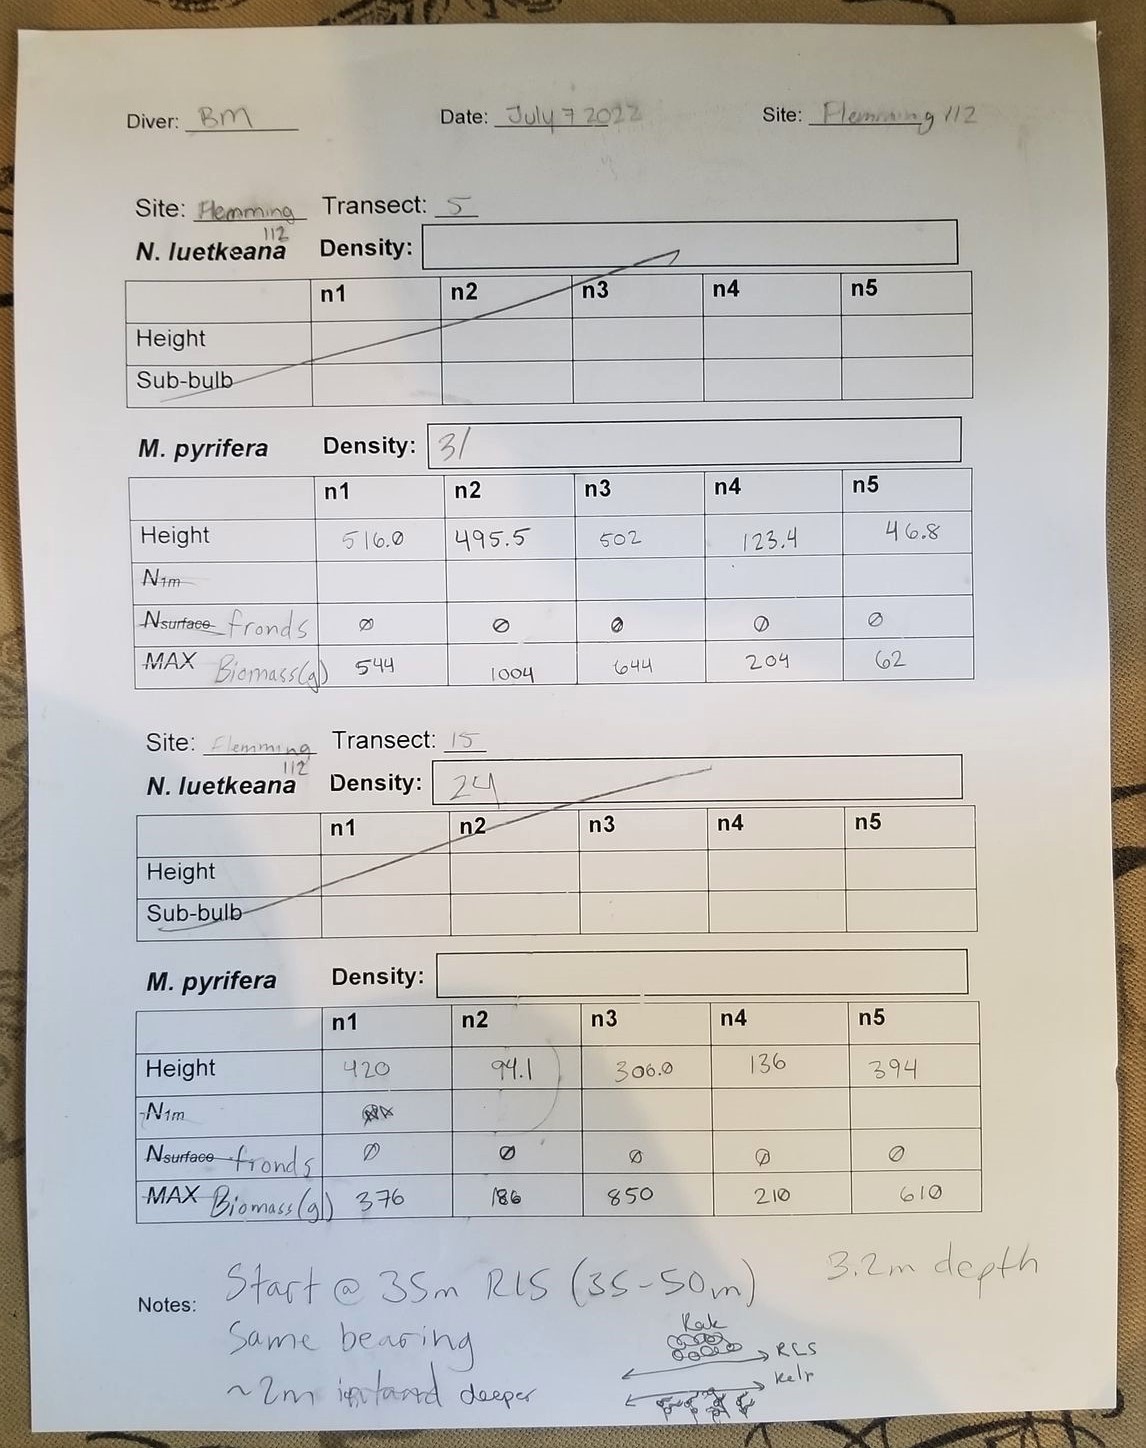 Diver: BM Date: July 7 2022 Site: Flemming 112
Site: Flemming 112 Transect: 5
N. luetkeana Density:
n1 n2 n3 n4 n5
Height
Sub-bulb
M. pyrifera Density: 31
n1 n2 n3 n4 n5
Height 516.0 495.5 502 123.4 46.8
N1m
Nsurface fronds 0 0 0 0 0
MAX Biomass(g) 544 1004 644 204 62
Site: Flemming 112 Transect: 15
N. luetkeana Density: 24
n1 n2 n3 n4 n5
Height
Sub-bulb
M. pyrifera Density:
n1 n2 n3 n4 n5
Height 420 94.1 306.0 136 394
N1m
Nsurface fronds 0 0 0 0 0
MAX Biomass(g) 376 186 850 210 610
Notes: Start @ 35m RLS (35-50m) 3.2m depth
Same bearing
~2m deeper
RLS
Kelp